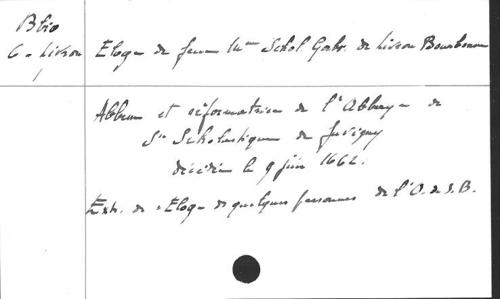 B bio
6 - Livron
1
Eloge de feue Mme Schol Gabr. de Livron Bourbonne
Abbesse et réformatrice de l'Abbaye de
Ste Scholastique de Juvigny
décédée le 9 juin 1662.
Extr. de "Eloge de quelques personnes de l'O. de S. B.